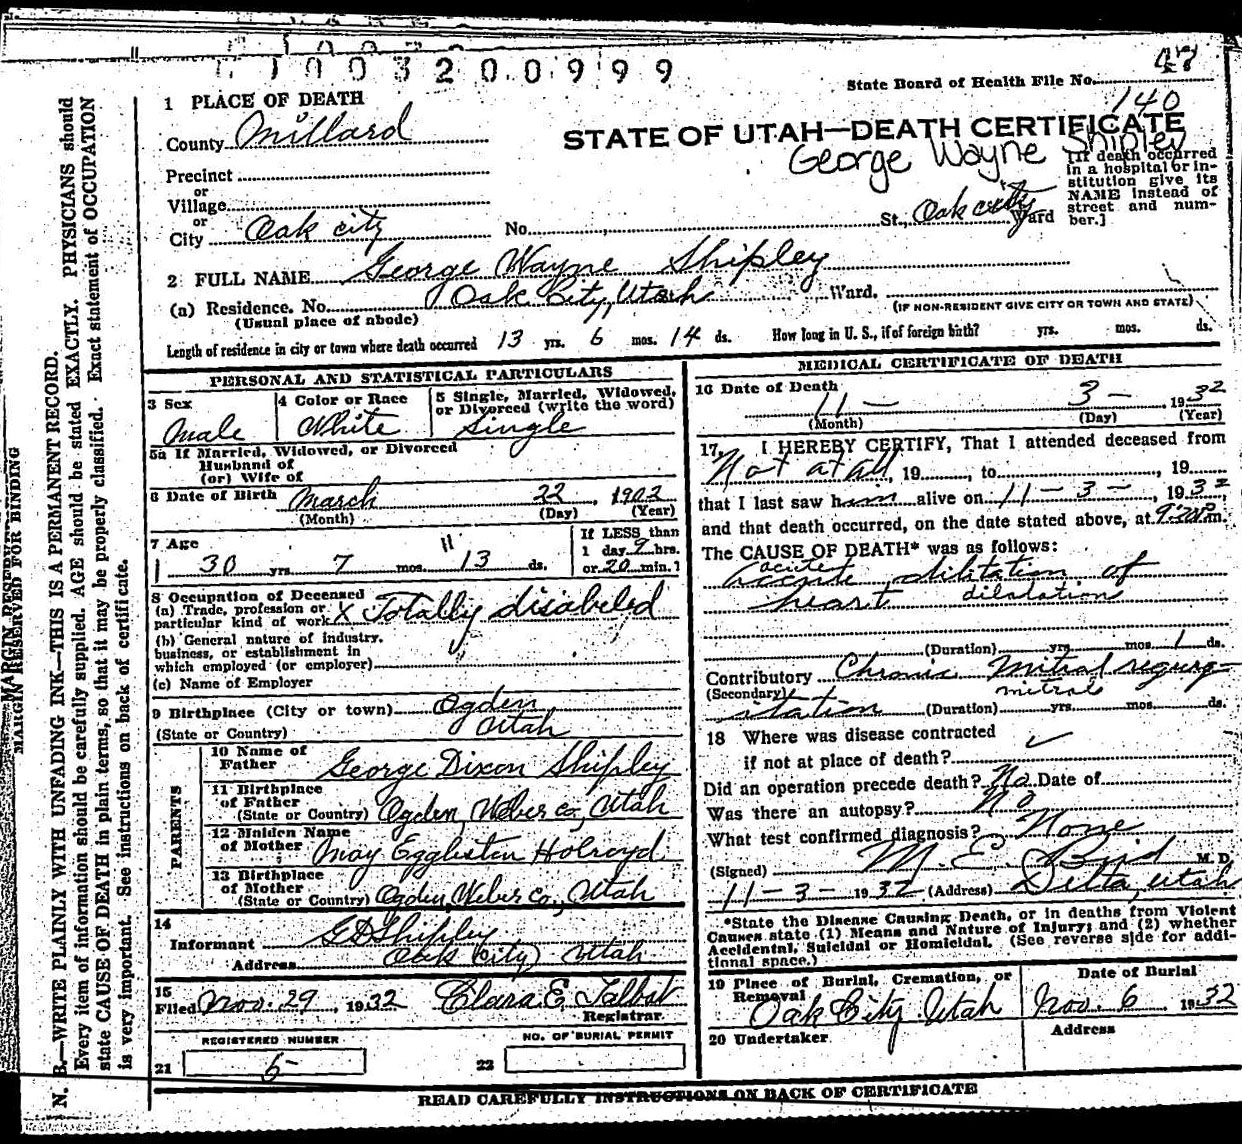 1003200999
State Board of Health File No. 48
140
1 PLACE OF DEATH
County Millard
STATE OF UTAH—DEATH CERTIFICATE
George Wayne Shipley
[If death occurred in a hospital or institution give its NAME instead of street and number.]
Precinct
or
Village
or
City Oak city No. St., Oak city Ward
2 FULL NAME George Wayne Shipley
(a) Residence. No. Oak City, Utah Ward.
(Usual place of abode) (IF NON-RESIDENT GIVE CITY OR TOWN AND STATE)
Length of residence in city or town where death occurred 13 yrs. 6 mos. 14 ds. How long in U. S., if of foreign birth? yrs. mos. ds.
PERSONAL AND STATISTICAL PARTICULARS
3 Sex
Male
4 Color or Race
White
5 Single, Married, Widowed, or Divorced (write the word)
Single
5a If Married, Widowed, or Divorced
Husband of
(or) Wife of
6 Date of Birth March 22, 1902
(Month) (Day) (Year)
7 Age
30 yrs. 7 mos. 11 13 ds.
If LESS than
1 day 9 hrs.
or 20 min.
8 Occupation of Deceased
(a) Trade, profession or
particular kind of work X Totally disabeled
(b) General nature of industry,
business, or establishment in
which employed (or employer)
(c) Name of Employer
9 Birthplace (City or town) Ogden
(State or Country) Utah
PARENTS
10 Name of
Father George Dixon Shipley
11 Birthplace
of Father
(State or Country) Ogden, Weber Co, Utah
12 Maiden Name
of Mother May Eggleston Holroyd
13 Birthplace
of Mother
(State or Country) Ogden, Weber Co., Utah
14
Informant G D Shipley
Address Oak City Utah
15
Filed Nov. 29, 1932 Clara E. Talbot
Registrar.
REGISTERED NUMBER
21 5
NO. OF BURIAL PERMIT
22
MEDICAL CERTIFICATE OF DEATH
16 Date of Death
11 — 3 — 1932
(Month) (Day) (Year)
17. I HEREBY CERTIFY, That I attended deceased from
Not at all, 19 , to , 19
that I last saw him alive on 11 — 3 —, 193
and that death occurred, on the date stated above, at m.
The CAUSE OF DEATH* was as follows:
acute
accute dilitation of
heart dilatation
(Duration) yrs. mos. 1 ds.
Contributory Chronic mitral regurg-
(Secondary) mitral
itation (Duration) yrs. mos. ds.
18 Where was disease contracted
if not at place of death?
Did an operation precede death? No Date of
Was there an autopsy? No
What test confirmed diagnosis? None
(Signed) M. E. Bird M. D.
11 — 3 — 1932 (Address) Delta, Utah
*State the Disease Causing Death, or in deaths from Violent
Causes state (1) Means and Nature of Injury; and (2) whether
Accidental, Suicidal or Homicidal. (See reverse side for addi-
tional space.)
19 Place of Burial, Cremation, or
Removal
Oak City Utah
Date of Burial
Nov. 6 1932
20 Undertaker
Address
READ CAREFULLY INSTRUCTIONS ON BACK OF CERTIFICATE
MARGIN RESERVED FOR BINDING
N. B.—WRITE PLAINLY WITH UNFADING INK—THIS IS A PERMANENT RECORD.
Every item of information should be carefully supplied. AGE should be stated EXACTLY. PHYSICIANS should
state CAUSE OF DEATH in plain terms, so that it may be properly classified. Exact statement of OCCUPATION
is very important. See instructions on back of certificate.